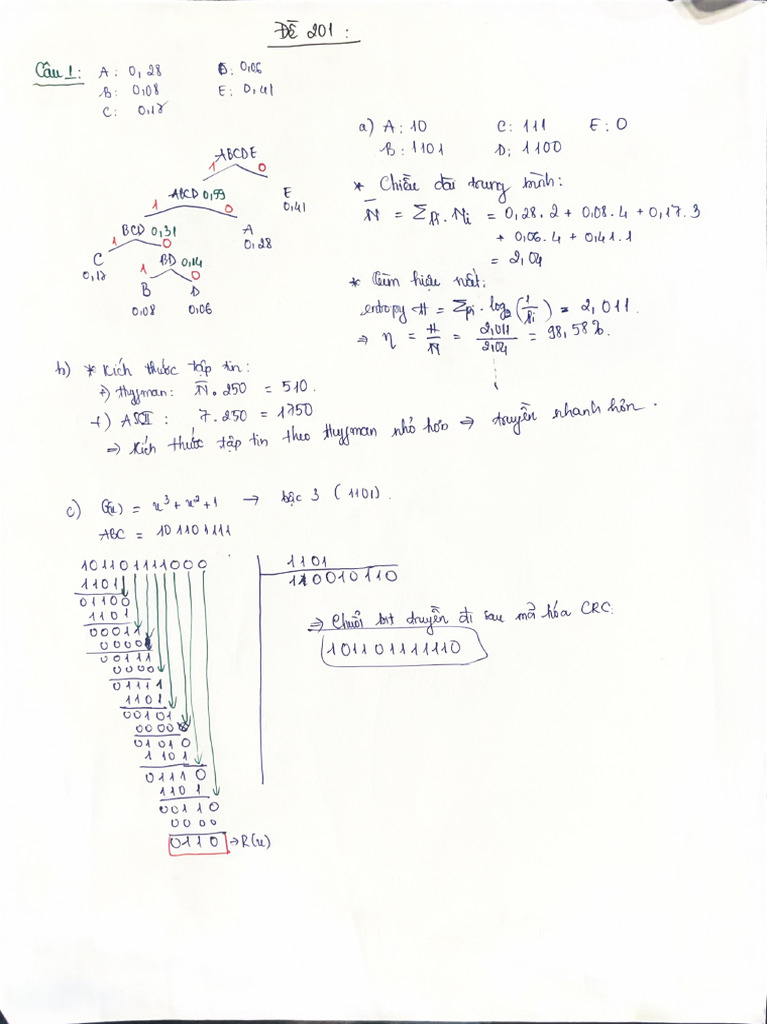 ĐỀ 201:
Câu 1: A: 0,28 D: 0,06
B: 0,08 E: 0,41
C: 0,17
a) A: 10 C: 111 E: 0
B: 1101 D: 1100
ABCDE
1 0
ABCD 0,59 E
0,41
1 0
BCD 0,31 A
0,28
1 0
C BD 0,14
0,17 1 0
B D
0,08 0,06
* Chiều dài trung bình:
N̄ = Σ Pi . Ni = 0,28.2 + 0,08.4 + 0,17.3
+ 0,06.4 + 0,41.1
= 2,04
* hiệu suất:
entropy H = Σ pi . log2 (1/Pi) = 2,011.
⇒ η = H/N̄ = 2,011/2,04 = 98,58%.
b) * Kích thước tập tin:
+) Huffman: N̄ . 250 = 510.
+) ASCII: 7.250 = 1750
⇒ Kích thước tập tin theo Huffman nhỏ hơn ⇒ truyền nhanh hơn.
c) G(x) = x³ + x² + 1 → bậc 3 (1101).
ABC = 101101111
101101111000 1101
1101 110010110
01100
1101
00011
0000
00111
0000
01111
1101
00101
0000
01010
1101
01110
1101
00110
0000
0110 → R(x)
⇒ Chuỗi bit truyền đi sau mã hóa CRC:
101101111110